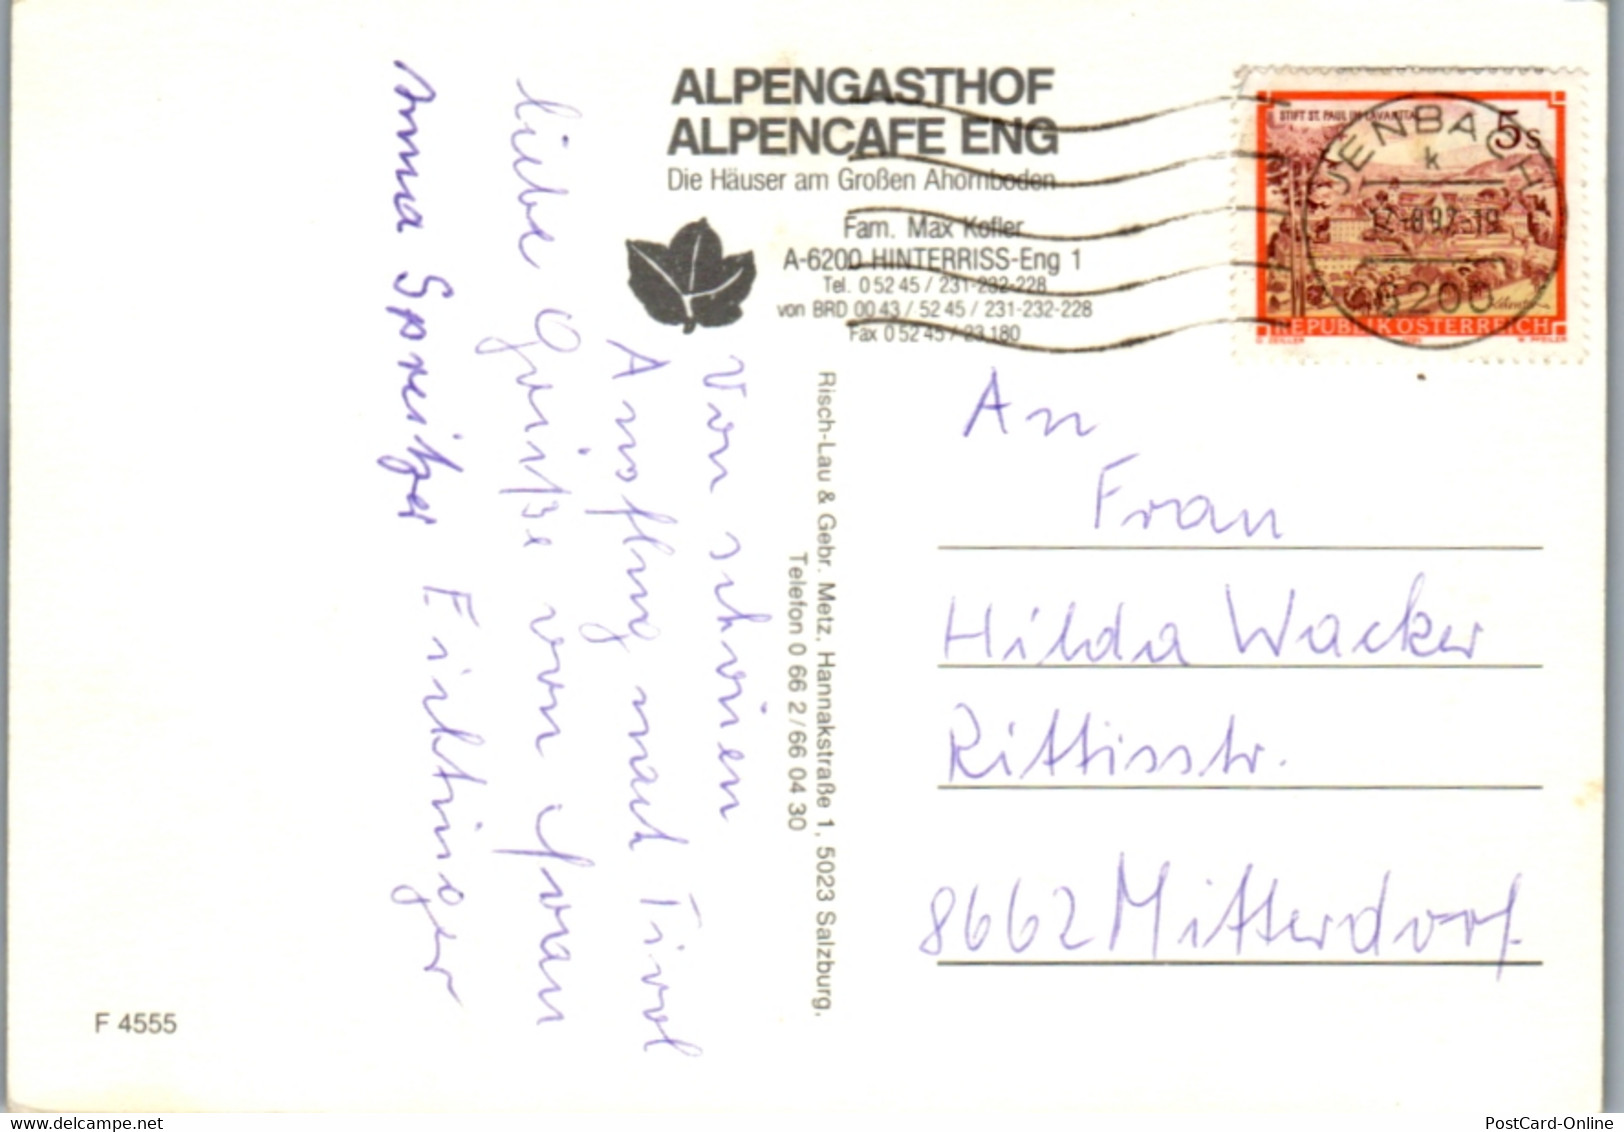 ALPENGASTHOF
ALPENCAFE ENG
Die Häuser am Großen Ahornboden
Fam. Max Kofler
A-6200 HINTERRISS-Eng 1
Tel. 0 52 45 / 231-232-228
von BRD 00 43 / 52 45 / 231-232-228
Fax 0 52 45 / 23 180
STIFT ST. PAUL IM LAVANTTAL
5s
REPUBLIK ÖSTERREICH
JENBACH
k
6200
Von schönen
Ausflug nach Tirol
liebe Grüße von
Anna Spreitzer
Risch-Lau & Gebr. Metz, Hannakstraße 1, 5023 Salzburg.
Telefon 0 66 2 / 66 04 30
An
Frau
Hilda Wacker
Rittisstr.
8662 Mitterdorf.
F 4555
PostCard-Online